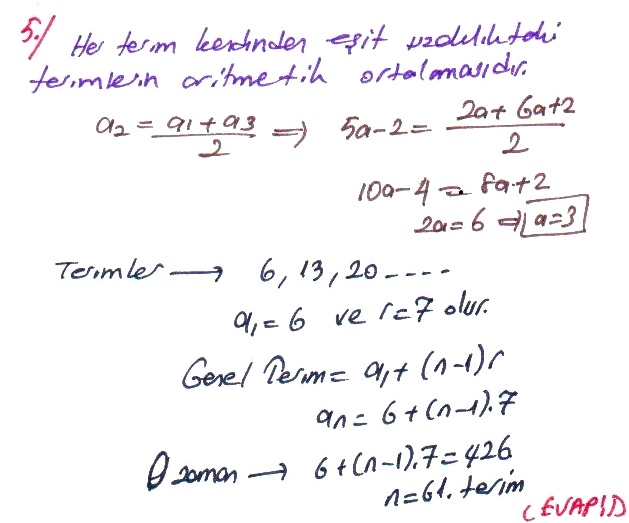 5./ Her terim kendinden eşit uzaklıktaki
terimlerin aritmetik ortalamasıdır.
a2 = a1 + a3 / 2 ⇒ 5a-2 = 2a + 6a+2 / 2
10a-4 = 8a+2
2a = 6 ⇒ a=3
Terimler → 6, 13, 20 ----
a1 = 6 ve r=7 olur.
Genel Terim = a1 + (n-1)r
an = 6 + (n-1).7
O zaman → 6 + (n-1).7 = 426
n=61. terim
CEVAP: D